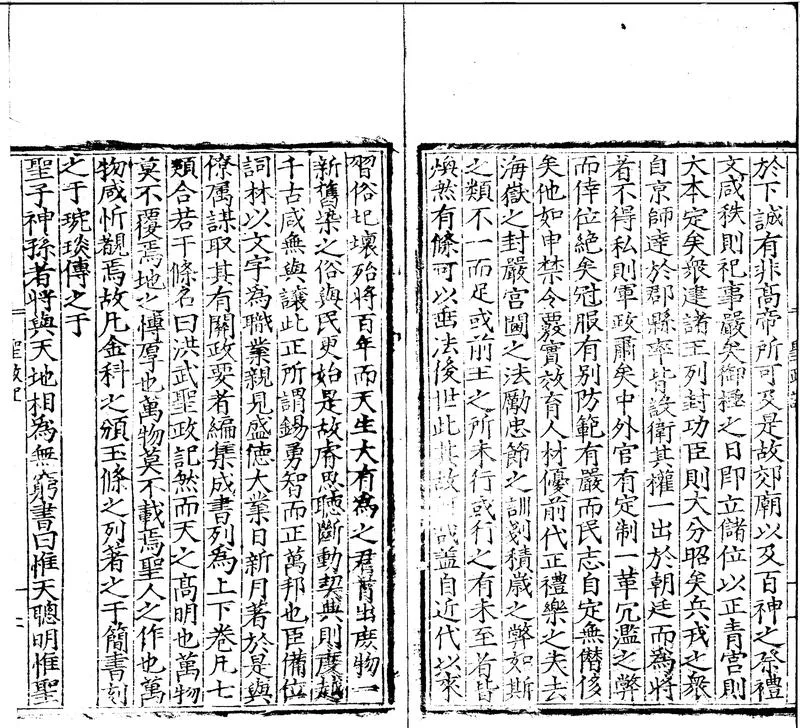 於下誠有非高帝所可及是故郊廟以及百神之祭禮
文咸秩則祀事嚴矣御極之日即立儲位以正青宮則
大本定矣衆建諸王列封功臣則大分昭矣兵戎之衆
自京師達於郡縣率皆設衛其權一出於朝廷而為將
者不得私則軍政肅矣中外官有定制一革冗濫之弊
而倖位絶矣冠服有別防範有嚴而民志自定無僭侈
矣他如申禁令覈實效育人材優前代正禮樂之失去
海嶽之封嚴宮閫之法勵忠節之訓剗積歲之弊如斯
之類不一而足或前王之所未行或行之有未至者皆
煥然有條可以垂法後世此其故何哉蓋自近代以來
習俗圮壞殆將百年而天生大有為之君首出庶物一
新舊染之俗與民更始是故睿思聰斷動契典則度越
千古咸無與讓此正所謂錫勇智而正萬邦也臣備位
詞林以文字為職業親見盛德大業日新月著於是與
僚属謀取其有關政要者編集成書列為上下卷凡七
類合若干條名曰洪武聖政記然而天之高明也萬物
莫不覆焉地之愽厚也萬物莫不載焉聖人之作也萬
物咸忻覩焉故凡金科之頒玉條之列著之于簡書刻
之于琬琰傳之于
聖子神孫者將與天地相為無窮書曰惟天聰明惟聖
聖政記